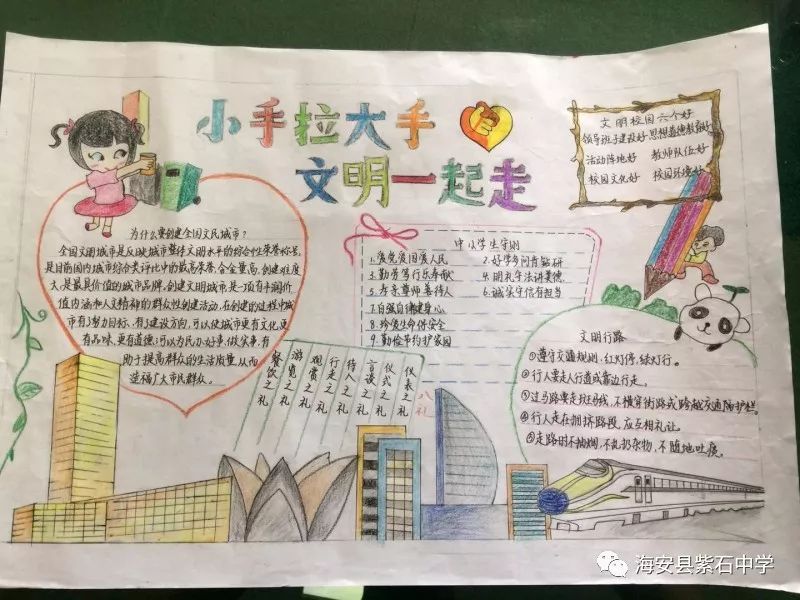 小手拉大手
文明一起走
文明校园六个好
领导班子建设好 思想道德教育好
活动阵地好 教师队伍好
校园文化好 校园环境好
为什么要创建全国文民城市?
全国文明城市是反映城市整体文明水平的综合性荣誉称号,
是目前国内城市综合类评比中的最高荣誉、含金量高,创建难度
大,是最具价值的城市品牌,创建文明城市是一项有丰润价
值内涵和人文精神的群众性创建活动,在创建的过程中城
市有3努力目标、有3建设方向,可以使城市更有文化,更
有品味、更有道德;可以为民办好事,做实事,有
助于提高群众的生活质量,从而
造福广大市民群众。
中小学生守则
1.爱党爱国爱人民 2.好学多问肯钻研
3.勤劳笃行乐奉献 4.明礼守法讲美德
5.孝亲尊师善待人 6.诚实守信有担当
7.自强自律健身心
8.珍爱生命保安全
9.勤俭节约护家园
八礼
仪表之礼
仪式之礼
言谈之礼
待人之礼
行走之礼
观赏之礼
游览之礼
餐饮之礼
文明行路
①遵守交通规则,红灯停,绿灯行。
②行人要走人行道或靠边行走。
③过马路要走斑马线,不横穿街路或跨越交通隔护栏。
④行人走在拥挤路段,应互相礼让。
⑤走路时不抽烟,不乱扔杂物,不随地吐痰。
海安县紫石中学